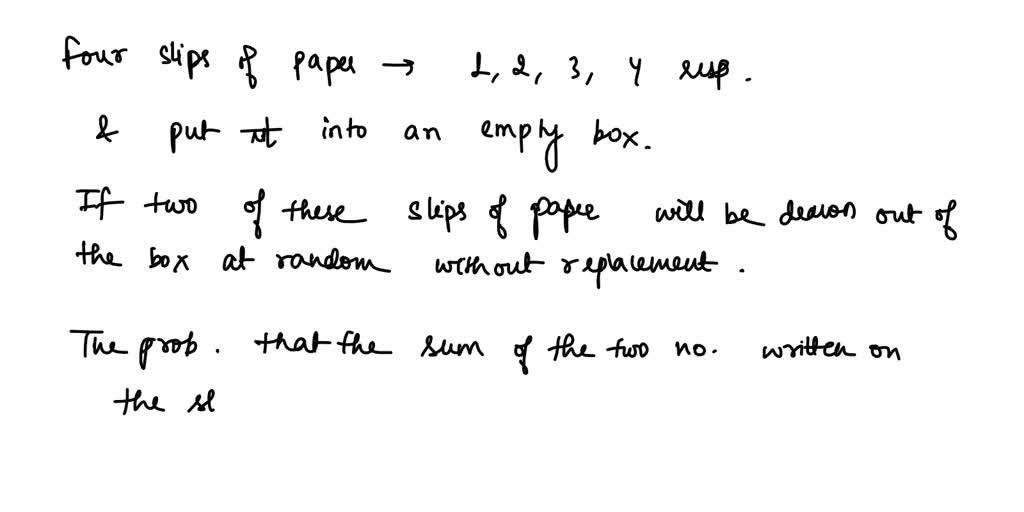 four slips of paper → 1, 2, 3, 4 resp.
& put it into an empty box.
If two of these slips of paper will be drawn out of
the box at random without replacement.
The prob. that the sum of the two no. written on
the sl